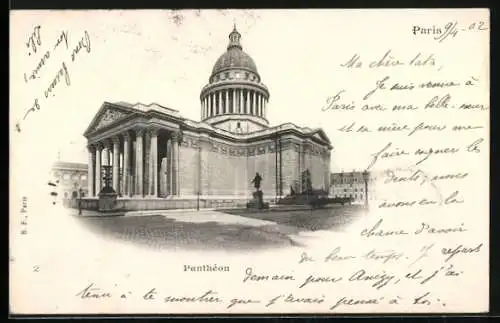 Paris 9/4-02
Ma chère
Je suis venue à
Paris avec ma belle-sœur
et sa mère pour me
faire soigner les
dents, nous
avons eu la
chance d'avoir
du beau temps. Je repars
demain pour Anezy, et j'ai
tenu à te montrer que j'avais pensé à toi.
Panthéon
2
B. F., Paris